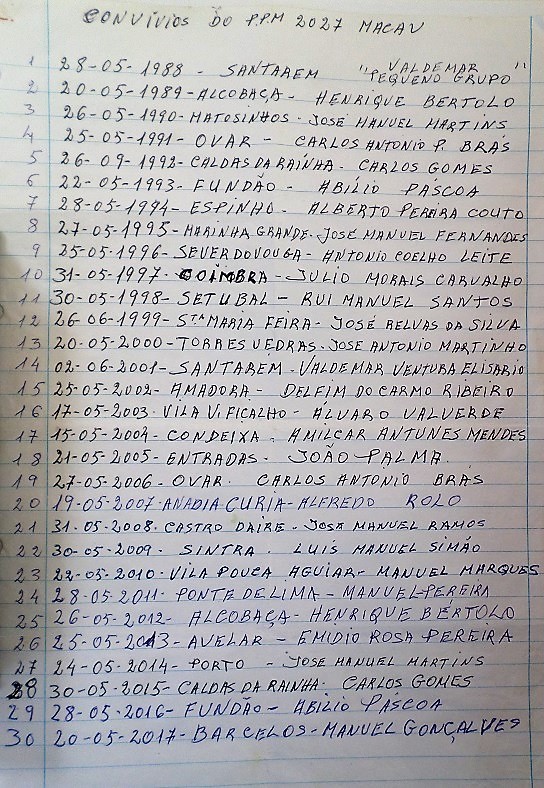 CONVÍVIOS DO P.P.M 2027 MACAU
1 28-05-1988 - SANTAREM "VALDEMAR PEQUENO GRUPO"
2 20-05-1989 - ALCOBAÇA - HENRIQUE BERTOLO
3 26-05-1990 - MATOSINHOS - JOSÉ MANUEL MARTINS
4 25-05-1991 - OVAR - CARLOS ANTONIO P. BRÁS
5 26-09-1992 - CALDAS DA RAINHA - CARLOS GOMES
6 22-05-1993 - FUNDÃO - ABILIO PÁSCOA
7 28-05-1994 - ESPINHO - ALBERTO PEREIRA COUTO
8 27-05-1995 - MARINHA GRANDE - JOSÉ MANUEL FERNANDES
9 25-05-1996 - SEVER DO VOUGA - ANTONIO COELHO LEITE
10 31-05-1997 - COIMBRA - JULIO MORAIS CARVALHO
11 30-05-1998 - SETUBAL - RUI MANUEL SANTOS
12 26-06-1999 - STA MARIA FEIRA - JOSÉ RELVAS DA SILVA
13 20-05-2000 - TORRES VEDRAS - JOSE ANTONIO MARTINHO
14 02-06-2001 - SANTAREM - VALDEMAR VENTURA ELISÁRIO
15 25-05-2002 - AMADORA - DELFIM DO CARMO RIBEIRO
16 17-05-2003 - VILA V. FICALHO - ALVARO VALVERDE
17 15-05-2004 - CONDEIXA - AMILCAR ANTUNES MENDES
18 21-05-2005 - ENTRADAS - JOÃO PALMA
19 27-05-2006 - OVAR - CARLOS ANTONIO BRÁS
20 19-05-2007 - ANADIA CURIA - ALFREDO ROLO
21 31-05-2008 - CASTRO DAIRE - JOSÉ MANUEL RAMOS
22 30-05-2009 - SINTRA - LUIS MANUEL SIMÃO
23 22-05-2010 - VILA POUCA AGUIAR - MANUEL MARQUES
24 28-05-2011 - PONTE DE LIMA - MANUEL PEREIRA
25 26-05-2012 - ALCOBAÇA - HENRIQUE BERTOLO
26 25-05-2013 - AVELAR - EMIDIO ROSA PEREIRA
27 24-05-2014 - PORTO - JOSÉ MANUEL MARTINS
28 30-05-2015 - CALDAS DA RAINHA - CARLOS GOMES
29 28-05-2016 - FUNDÃO - ABILIO PÁSCOA
30 20-05-2017 - BARCELOS - MANUEL GONÇALVES